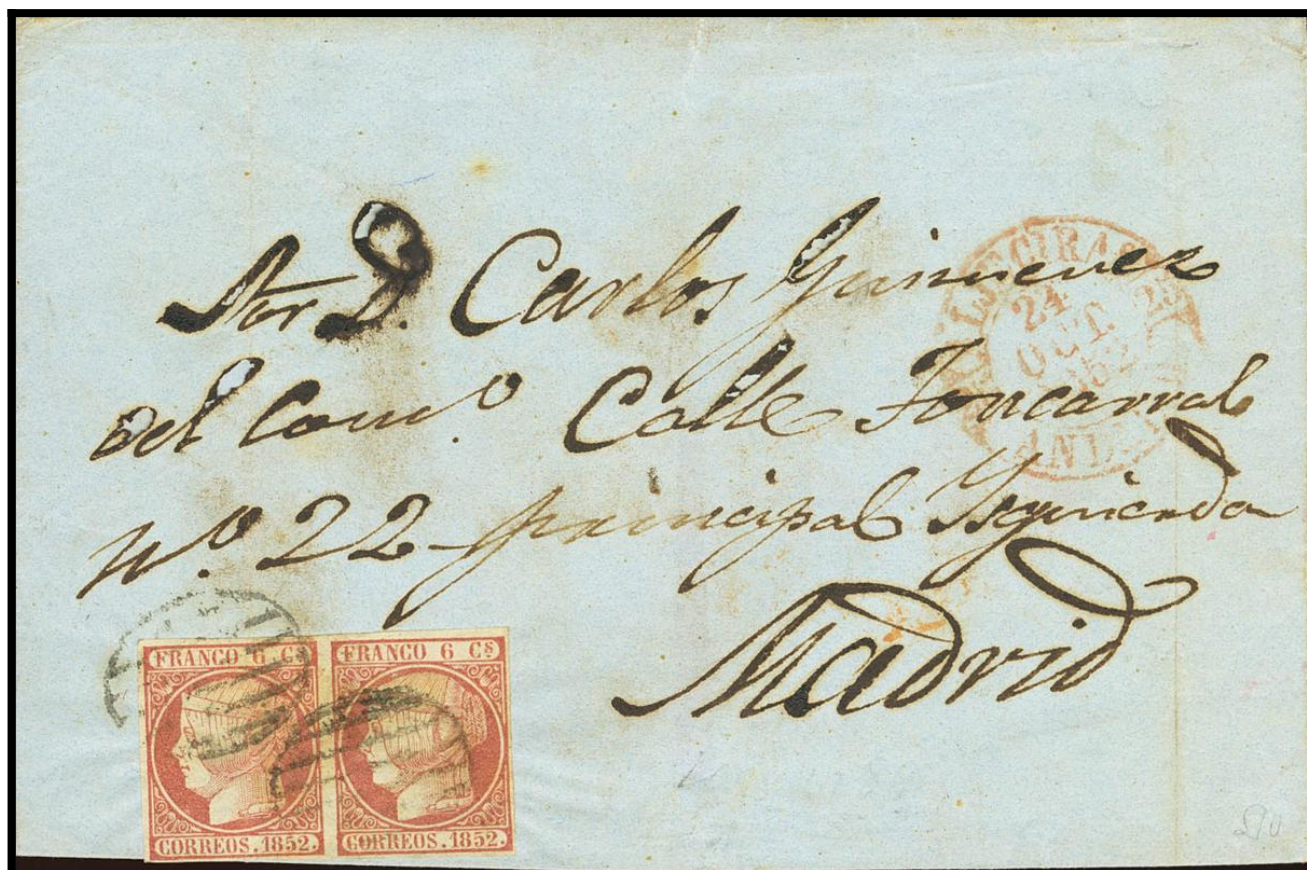 Sor D. Carlos Gimenez
del Como. Calle Foncarral
No. 22 principal Izquierda
Madrid
ALGECIRAS 25
24
OCT.
1852
AND.
FRANCO 6 Cs FRANCO 6 Cs
CORREOS. 1852. CORREOS. 1852.